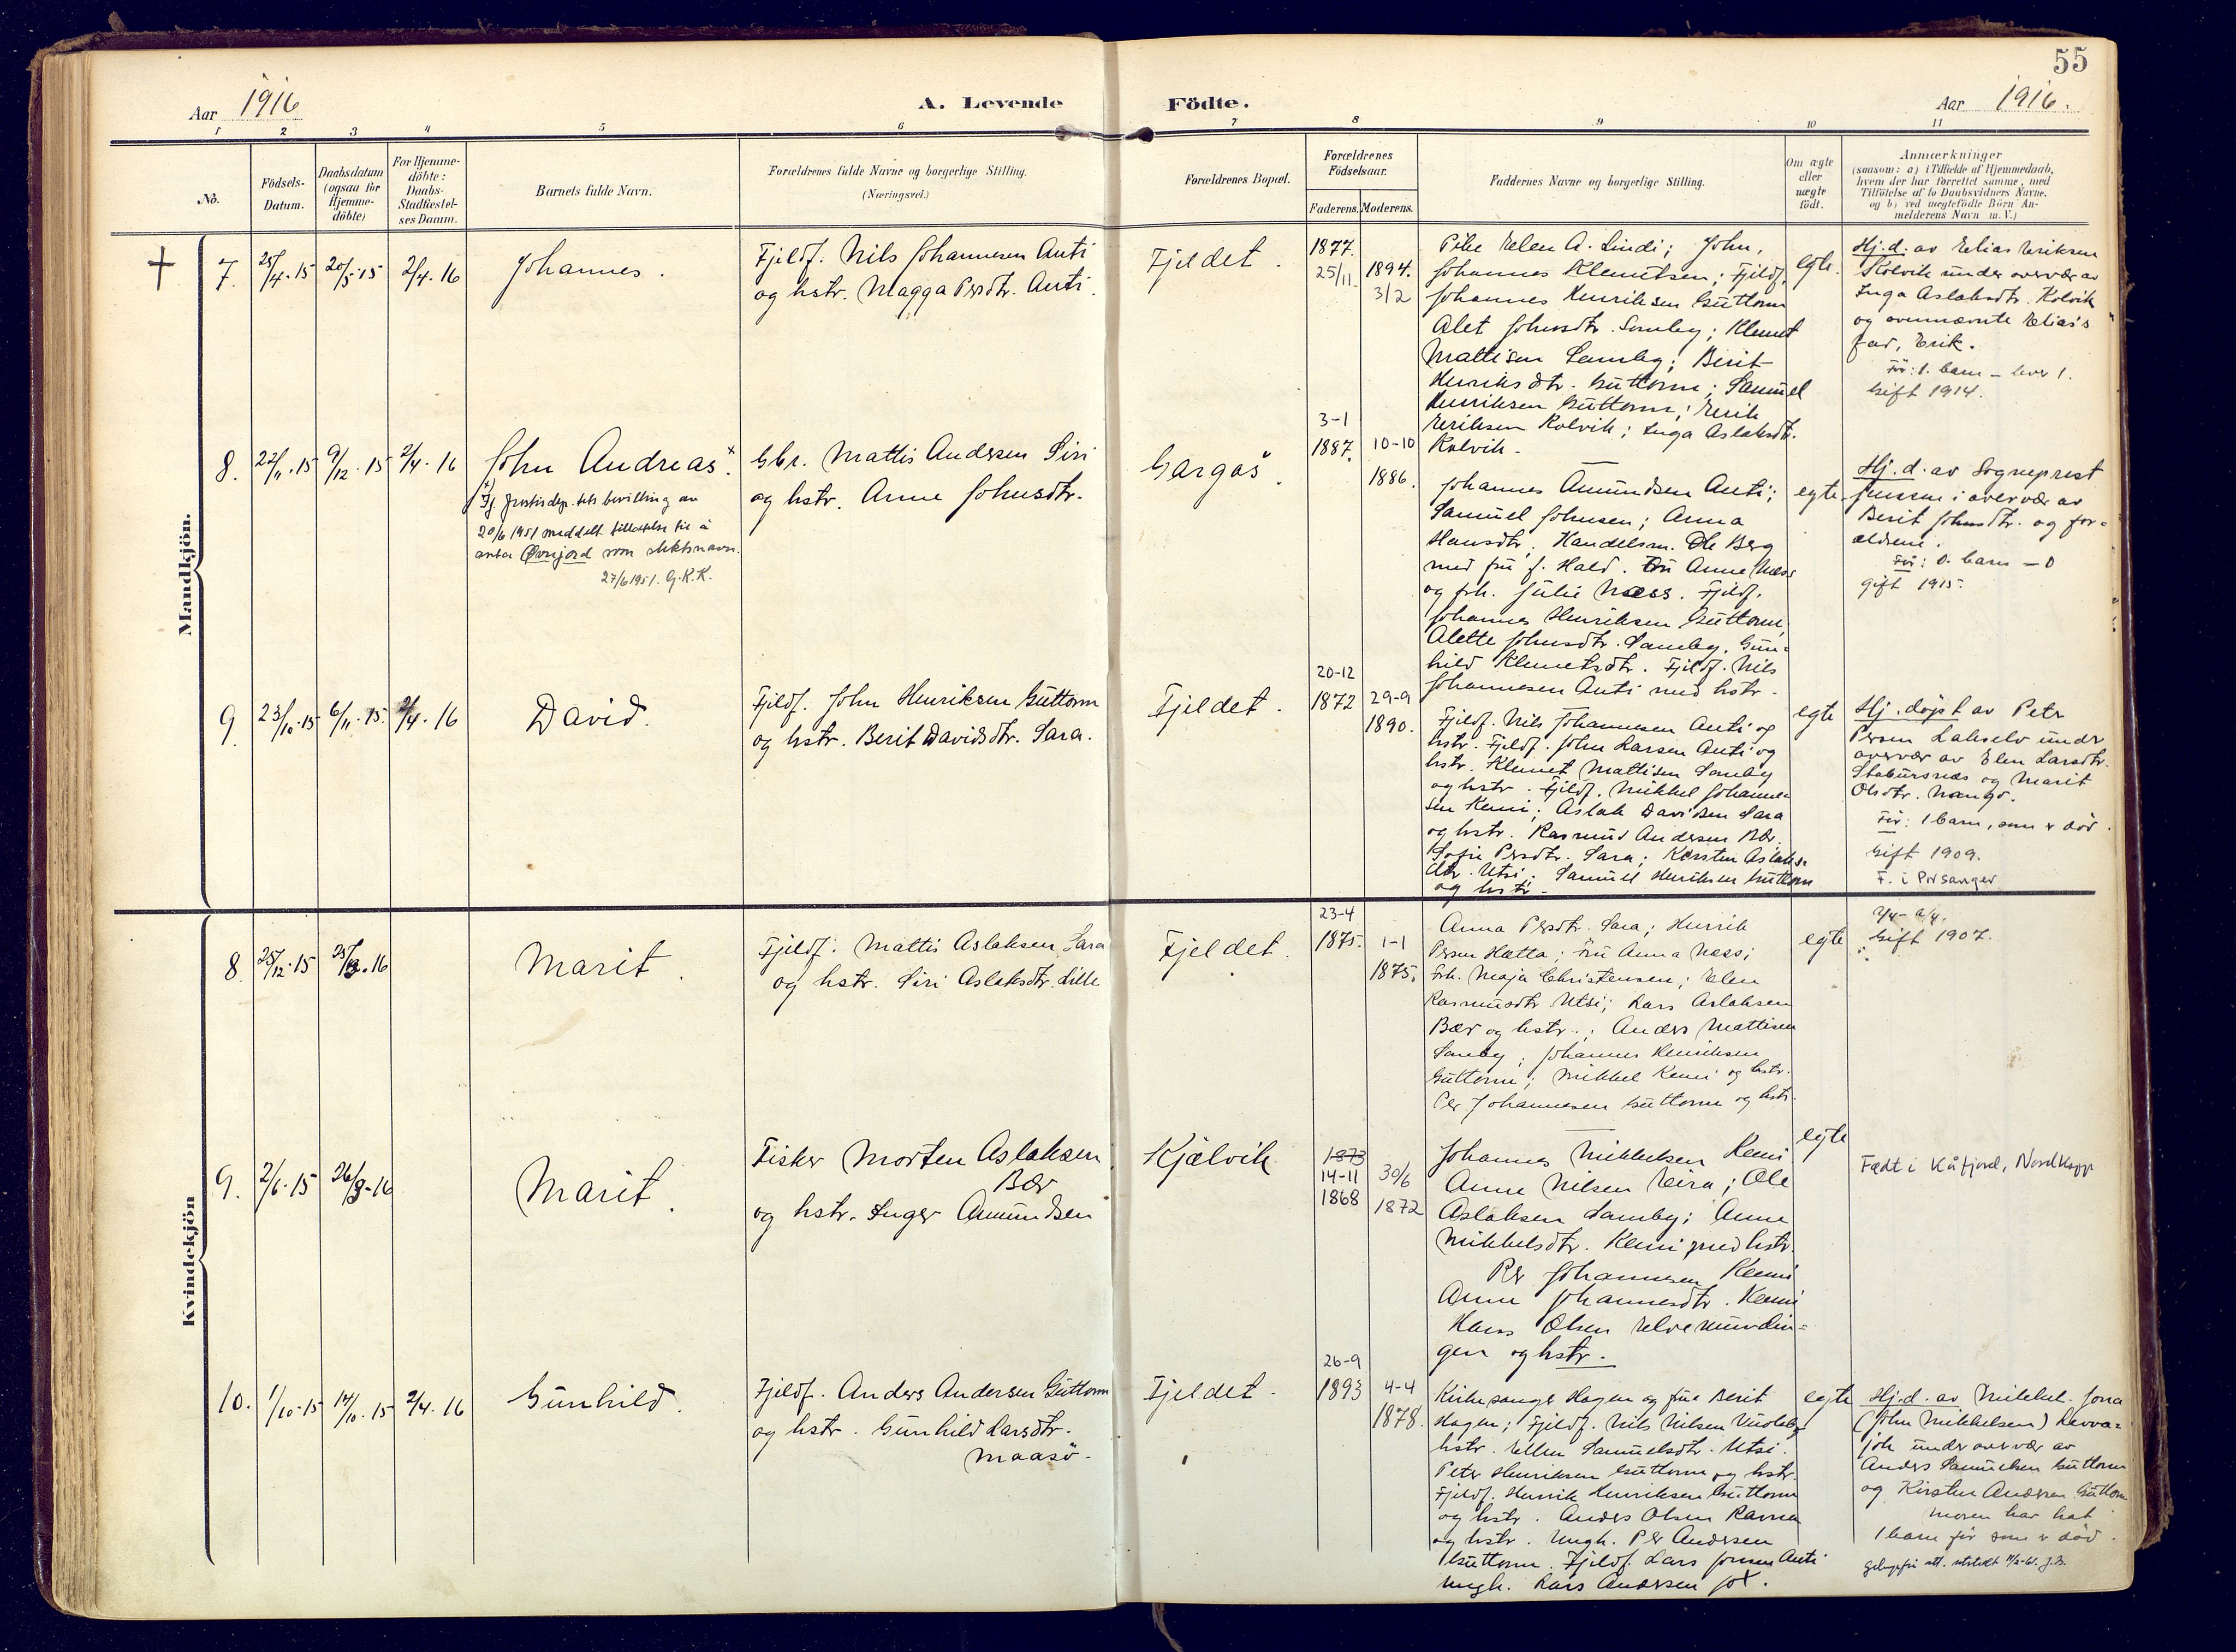 55
Aar 1916
A. Levende Födte.
Aar 1916.
1 2 3 4 5 6 7 8 9 10 11
No.
Födsels-
Datum.
Daabsdatum
(ogsaa for
Hjemme-
döbte)
For Hjemme-
döbte:
Daabs-
Stadfæstel-
ses Datum.
Barnets fulde Navn.
Forældrenes fulde Navne og borgerlige Stilling.
(Næringsvei.)
Forældrenes Bopæl.
Forældrenes
Födselsaar.
Faderens. Moderens.
Faddernes Navne og borgerlige Stilling.
Om ægte
eller
uægte
født.
Anmærkninger
(saasom: a) i Tilfælde af Hjemmedaab,
hvem der har forrettet samme, med
Tilföielse af to Daabsvidners Navne,
og b) ved uægtefödte Börn An-
melderens Navn m. V.)
Mandkjön.
7. 25/4-15 20/5-15 2/4-16
Johannes.
Fjeldf. Nils Johannesen Anti
og hstr. Magga Persdtr. Anti.
Fjeldet.
1877.
25/11
1894.
3/2
Pike Elen A. Lindi; John,
Johannes Klemetsen; Fjeldf.
Johannes Henriksen Guttorm
Alet Johnsdtr. Somby; Klemet
Mattisen Somby; Berit
Henriksdtr. Guttorm; Samuel
Henriksen Guttorm; Erik
Eriksen Kolvik; Inga Aslaksdt.
Kolvik.
egte.
Hj.d. av Elias Eriksen
Kolvik under overvær av
Inga Aslaksdtr. Kolvik
og ovennævnte Elias's
far, Erik.
Før: 1. barn - lever 1.
Gift 1914.
8. 22/11-15 9/12-15 2/4-16
John Andreas x.
x) Ifj justisdep.tets bevilling av
20/6 1951 meddelt tillatelse til å
anta Øvrejord som slektsnavn.
27/6 1951. G.K.K.
Gbr. Mattis Andersen Siri
og hstr. Anne Johnsdtr.
Gargo.
3-1
1887.
10-10
1886.
Johannes Amundsen Anti;
Samuel Johnsen; Anna
Hansdtr. Handelsm. Ole Berg
med fru f. Hald. Fru Anne Næss
og frk. Julie Næss. Fjeldf.
Johannes Henriksen Guttorm,
Alette Johnsdtr. Somby. Gun=
hild Klemetsdtr. Fjeldf. Nils
Johannesen Anti med hstr.
egte
Hj.d. av Sogneprest
Jenssen i overvær av
Berit Johnsdtr. og for=
ældrene.
Før: 0. barn - 0
gift 1915.
9. 23/10-15 6/11-15. 2/4-16
David.
Fjeldf. John Henriksen Guttorm
og hstr. Berit Davidsdtr. Sara.
Fjeldet.
20-12
1872
29-9
1890.
Fjeldf. Nils Johannesen Anti og
hstr. Fjeldf. John Larsen Anti og
hstr. Klemet Mattisen Somby
og hstr. Fjeldf. Mikkel Johanne=
sen Kemi; Aslak Davidsen Sara
og hstr. Rasmus Andersen Bær.
Sofie Persdtr. Sara; Kirsten Aslaks=
dtr. Utsi; Samuel Henriksen Guttorm
og hstr.
egte
Hj. døpt av Petr
Persen Lakselv under
overvær av Elen Larsdtr.
Stabursnæs og Marit
Olsdtr.
Før: 1 barn, som er død.
Gift 1909.
F. i Porsanger
Kvindekjön
8. 25/12-15
Marit.
Fjeldf. Mattis Aslaksen Sara
og hstr. Siri Aslaksdtr. Lille
Fjeldet.
23-4
1875.
1-1
1875.
Anna Persdtr. Sara; Henrik
Persen Hætta; Fru Anna Næss;
frk. Maja Christensen; Elen
Rasmusdtr Utsi; Lars Aslaksen
Bær og hstr.; Anders Mattisen
Somby; Johannes Henriksen
Guttorm; Mikkel Kemi og hstr.
Per Johannesen Guttorm og hstr.
egte
Gift 1907.
9. 2/6-15 26/3-16
Marit.
Fisker Morten Aslaksen
Bær
og hstr. Inger Amundsen
Kjelvik
1873
14-11
1868
30/6
1872
Johannes Mikkelsen Kemi
Anne Nilsen Eira; Ole
Aslaksen Somby; Anne
Mikkelsdtr. Kemi med hstr.
Per Johannesen Kemi
Anne Johannesdtr. Kemi
Hans Olsen Elvemundin=
gen og hstr.
egte
Født i Kåfjord, Nordkapp
10. 1/10-15 14/10-15 2/4-16
Gunhild.
Fjeldf. Anders Andersen Guttorm
og hstr. Gunhild Larsdtr.
Maasö.
Fjeldet.
26-9
1893
4-4
1878.
Kirkesanger Hagen og frue Berit
Hagen; Fjeldf. Nils Nilsen
hstr. Ellen Samuelsdtr. Utsi.
Peter Henriksen Guttorm og hstr.
Fjeldf. Henrik Henriksen Guttorm
og hstr. Anders Olsen Ravna
og hstr. Ungk. Per Andersen
Guttorm. Fjeldf. Lars Jonsen Anti
ungk. Lars Andersen
egte
Hj.d. av Mikkel Jona
(John Mikkelsen) Levva=
jok under overvær av
Anders Samuelsen Guttorm
og Kirsten Andersen Guttorm
Moren har hat
1 barn før som er død.